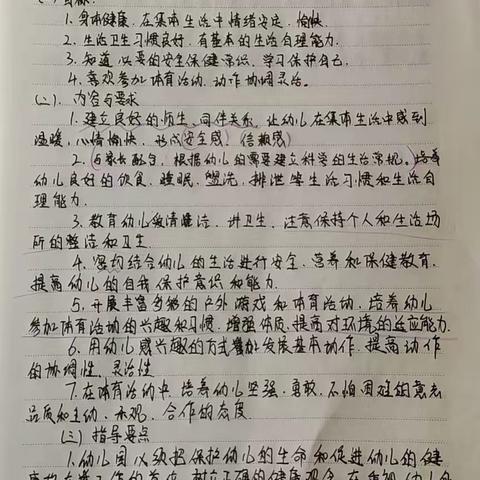 1. 身体健康,在集体生活中情绪安定、愉快
2. 生活卫生习惯良好,有基本的生活自理能力.
3. 知道必要的安全保健常识,学习保护自己
4. 喜欢参加体育活动,动作协调灵活.
(二). 内容与要求
1. 建立良好的师生、同伴关系,让幼儿在集体生活中感到
温暖,心情愉快,形成安全感、信赖感
2. 与家长配合,根据幼儿的需要建立科学的生活常规。培养
幼儿良好的饮食、睡眠、盥洗、排泄等生活习惯和生活自
理能力.
3. 教育幼儿爱清洁、讲卫生,注意保持个人和生活场
所的整洁和卫生
4. 密切结合幼儿的生活进行安全、营养和保健教育,
提高幼儿的自我保护意识和能力.
5. 开展丰富多彩的户外游戏和体育活动,培养幼儿
参加体育活动的兴趣和习惯,增强体质,提高对环境的适应能力.
6. 用幼儿感兴趣的方式发展基本动作,提高动作
的协调性、灵活性
7. 在体育活动中,培养幼儿坚强、勇敢、不怕困难的意志
品质和主动、乐观、合作的态度
(三) 指导要点
1. 幼儿园必须把保护幼儿的生命和促进幼儿的健